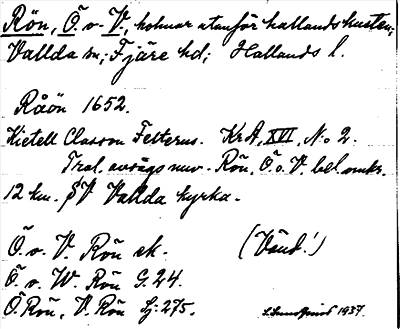 Rön, Ö. o. V., holmar utanför hallandskusten;
Vallda sn; Fjäre hd; Hallands l.
Råön 1652.
Kietell Classon Felterus. KrA, XVI, No 2.
Trol. avsågs nuv. Rön, Ö. o. V. bel. omkr.
12 km. SV Vallda kyrka.
Ö. o. V. Rön ek. (Vänd!)
Ö. o. W. Rön G. 24.
Ö. Rön, V. Rön Sj: 275.
1937.